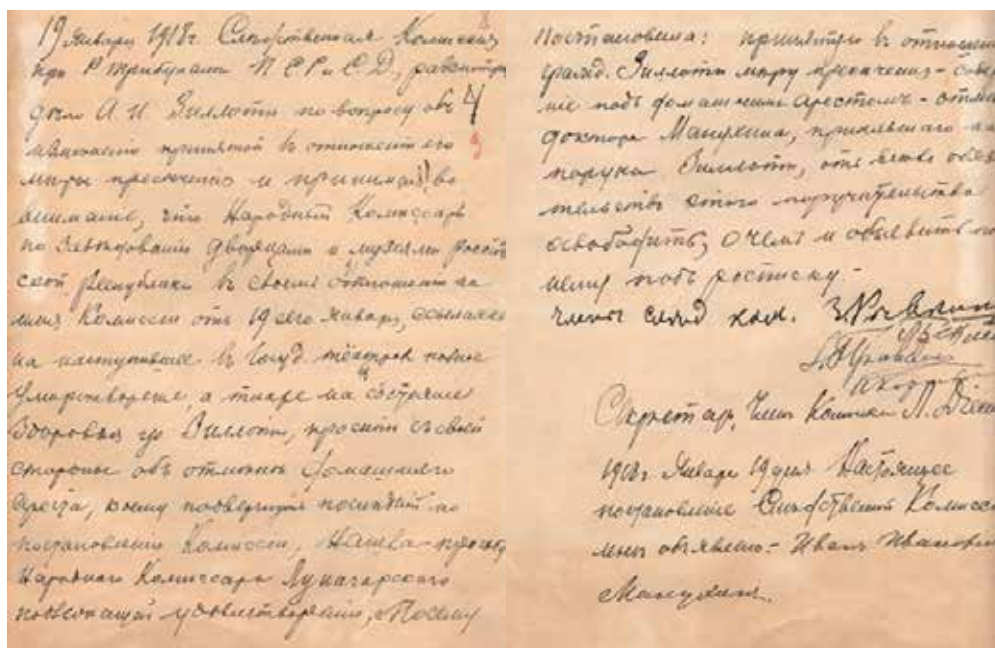 19 Января 1918г. Следственная Комиссия
при Р Трибунале П С Р и С Д, рассмотр
дело А И Зилоти по вопросу объ 4
измѣненiи принятой въ отношенiи его
мѣры пресѣченiя и принимая во
вниманiе, что Народный Комиссаръ
по завѣдованiю дворцами и музеями россiй
ской республики въ своемъ отношенiи на
имя Комиссiи отъ 19 сего Января, ссылаясь
на наступившее въ Госуд театрахъ полное
умиротворенiе, а также на состоянiе
здоровья гр Зилоти, проситъ съ своей
стороны объ отмѣнѣ домашняго
ареста, коему подвергнутъ послѣднiй по
постановленiю Комиссiи, нашла просьбу
Народнаго Комиссара Луначарского
подлежащей удовлетворенiю, Посему
Постановила: принятую въ отношенiи
гражд. Зилоти мѣру пресѣченiя - содер
нiе подъ домашнимъ арестомъ - отмѣ
доктора Манухина, принявшаго на
поруки Зилоти, отъ обяза
тельствъ этого поручительства
освободить, о чемъ и объявить по
подъ росписку.-
члены слѣд ком.
Секретарь, Членъ Комиссiи Л.
1918г Января 19 дня Настоящее
постановленiе Слѣдственной Комиссiи
мнѣ объявлено:- Иванъ Ивановичъ
Манухинъ.